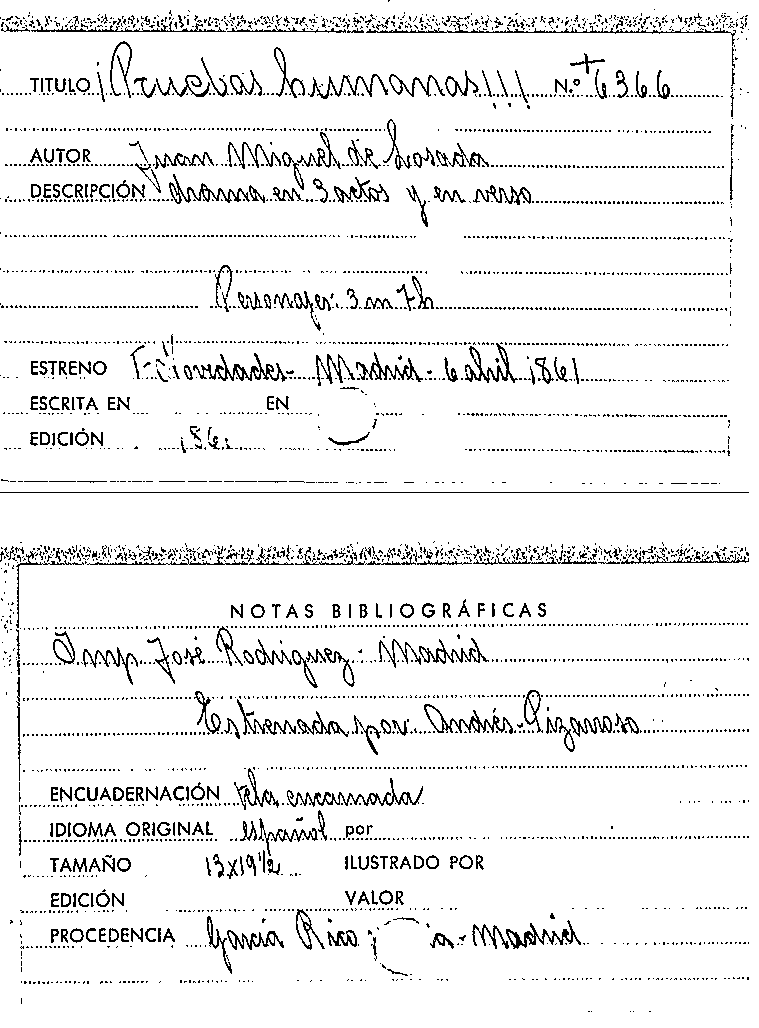 TITULO ¡Pruebas humanas!!! N.º 6366
AUTOR Juan Miguel de Losada
DESCRIPCIÓN drama en 3 actos y en verso
Personajes: 3 m 7 h
ESTRENO T- Novedades- Madrid- 6 abril 1861
ESCRITA EN EN
EDICIÓN 1861
NOTAS BIBLIOGRÁFICAS
Imp. José Rodriguez - Madrid
Estrenada por Andrés Pizarroso
ENCUADERNACIÓN tela encarnada
IDIOMA ORIGINAL español por
TAMAÑO 13x19½ ILUSTRADO POR
EDICIÓN VALOR
PROCEDENCIA García Rico - Madrid